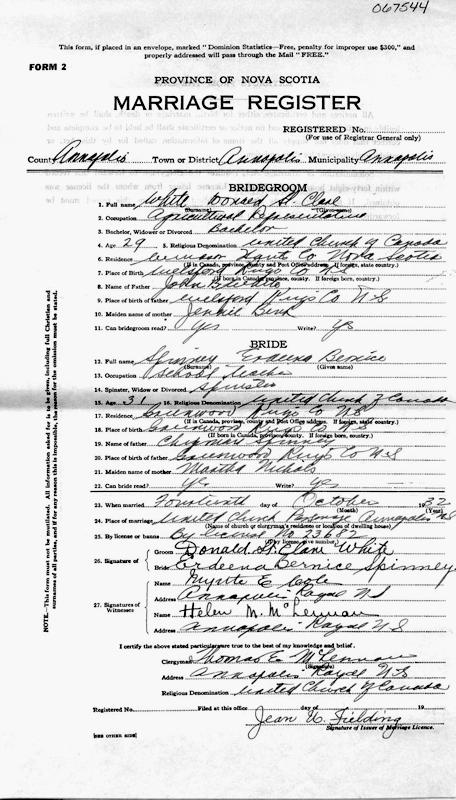 067544
This form, if placed in an envelope, marked "Dominion Statistics—Free, penalty for improper use $300," and
properly addressed will pass through the Mail "FREE."
FORM 2
PROVINCE OF NOVA SCOTIA
MARRIAGE REGISTER
REGISTERED No.
(For use of Registrar General only)
County Annapolis Town or District Annapolis Municipality Annapolis
BRIDEGROOM
1. Full name White Donald St. Clare
(Surname) (Given name)
2. Occupation Agricultural Representative
3. Bachelor, Widower or Divorced Bachelor
4. Age 29 5. Religious Denomination United Church of Canada
6. Residence Hants Co Nova Scotia
(If in Canada, province, county and Post Office address. If foreign, state country.)
7. Place of Birth Welsford Kings Co N S
(If born in Canada, province, county. If foreign, state country.)
8. Name of Father John White
9. Place of birth of father Welsford Kings Co N S
10. Maiden name of mother Jennie
11. Can bridegroom read? Yes Write? Yes
BRIDE
12. Full name Spinney Erdeena Bernice
(Surname) (Given name)
13. Occupation School Teacher
14. Spinster, Widow or Divorced Spinster
15. Age 31 16. Religious Denomination United Church of Canada
17. Residence Greenwood Kings Co NS
(If in Canada, province, county and Post Office address. If foreign, state country.)
18. Place of birth Greenwood Kings Co NS
(If born in Canada, province, county. If foreign, state country.)
19. Name of father Spinney
20. Place of birth of father Greenwood Kings Co N.S
21. Maiden name of mother Martha Nichols
22. Can bride read? Yes Write? Yes
23. When married Fourteenth day of October 1932
(Month) (Year)
24. Place of marriage United Church Parsonage Annapolis NS
(Name of church or clergyman's residence or location of dwelling house)
25. By license or banns By License No 23,682
(If by license, give number)
26. Signature of Groom Donald St. Clare White
Bride Erdeena Bernice Spinney
27. Signatures of Witnesses
Name Myrtle E
Address Annapolis Royal NS
Name Helen M. McLennan
Address Annapolis Royal NS
I certify the above stated particulars are true to the best of my knowledge and belief.
Clergyman Thomas E. McLennan
(Signature)
Address Annapolis Royal NS
Religious Denomination United Church of Canada
Registered No. Filed at this office day of 19
Jean W. Fielding
Signature of Issuer of Marriage Licence.
[SEE OTHER SIDE]
NOTE.—This form must not be mutilated. All information asked for is to be given, including full Christian and
surnames of all parties, and if for any reason this is impossible, the reason for the omission must be stated.